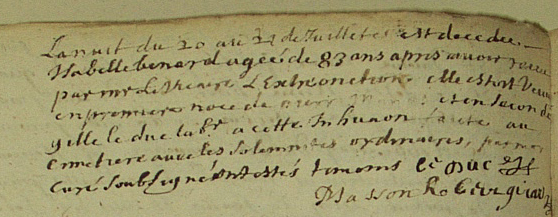 La nuit du 20 au 21 de Juillet est decedee
Isabelle benard agée de 83 ans apres avoir receu
par mr Le vicaire L'Extreonction. elle estoit veuve
en premiere noce de et en second
gille le duc lab.r a este Inhumon faite au
cimetiere avec les solemnites ordinaires, par moy
curé soubsigné tesmoins le duc
Masson